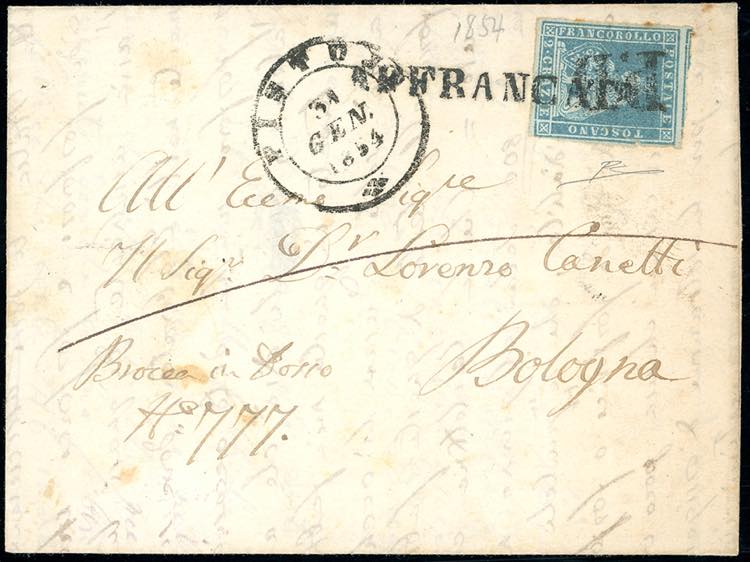 1854
PISTOIA
31
GEN.
1854
AFFRANCATA
FRANCOBOLLO
POSTALE
TOSCANO
2. CRAZIE
All' Eccmo Sigre
Il Sigr. Dr. Lorenzo Canetti
Bologna
Brocca in Dosso
No. 777.